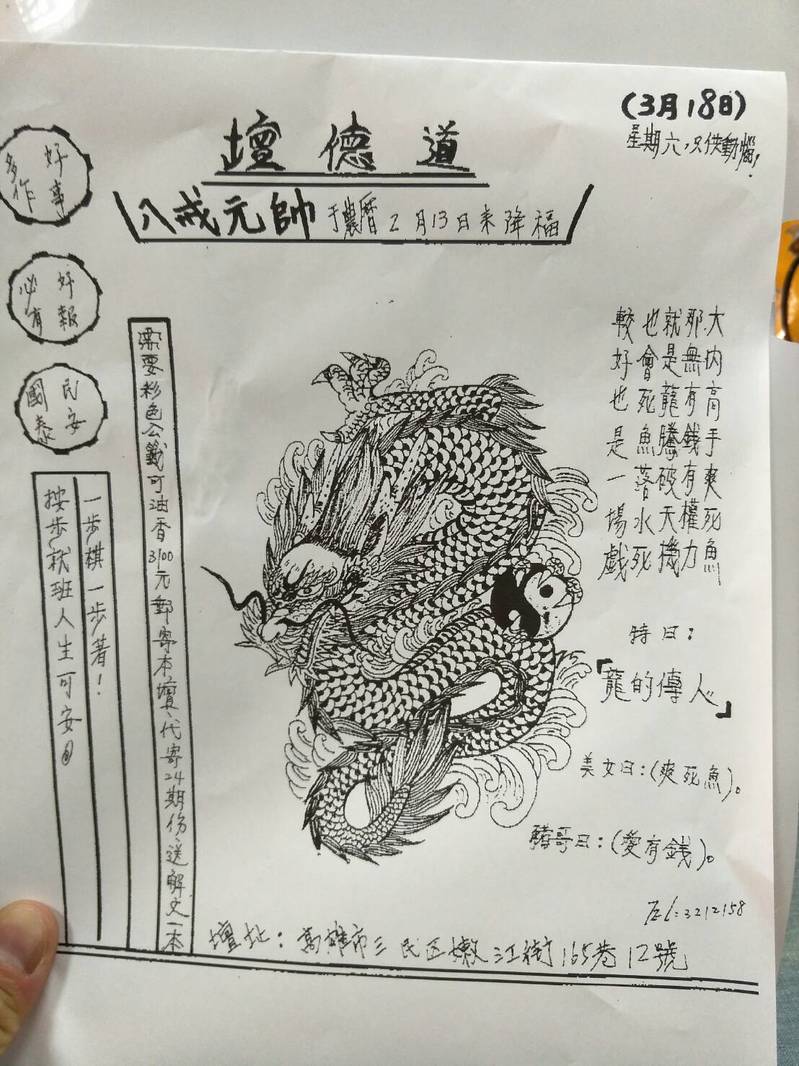 (3月18日)
星期六,只供動惱!
壇德道
八戒元帥于農曆2月13日来降福
好事
多作
好報
必有
民安
國泰
大内高手爽死魚
那無有錢有權力
就是龍騰破天機
也會死魚落水死
較好也是一場戲
特曰:
「龍的傳人」
美女曰:(爽死魚)。
豬哥曰:(愛有錢)。
需要彩色公籤可油香3100元郵寄本壇、代寄24期份、送解史一本
一步棋一步著!
按步就班人生可安@
Tel:3212158
壇址:高雄市三民區嫩江街165巷12號